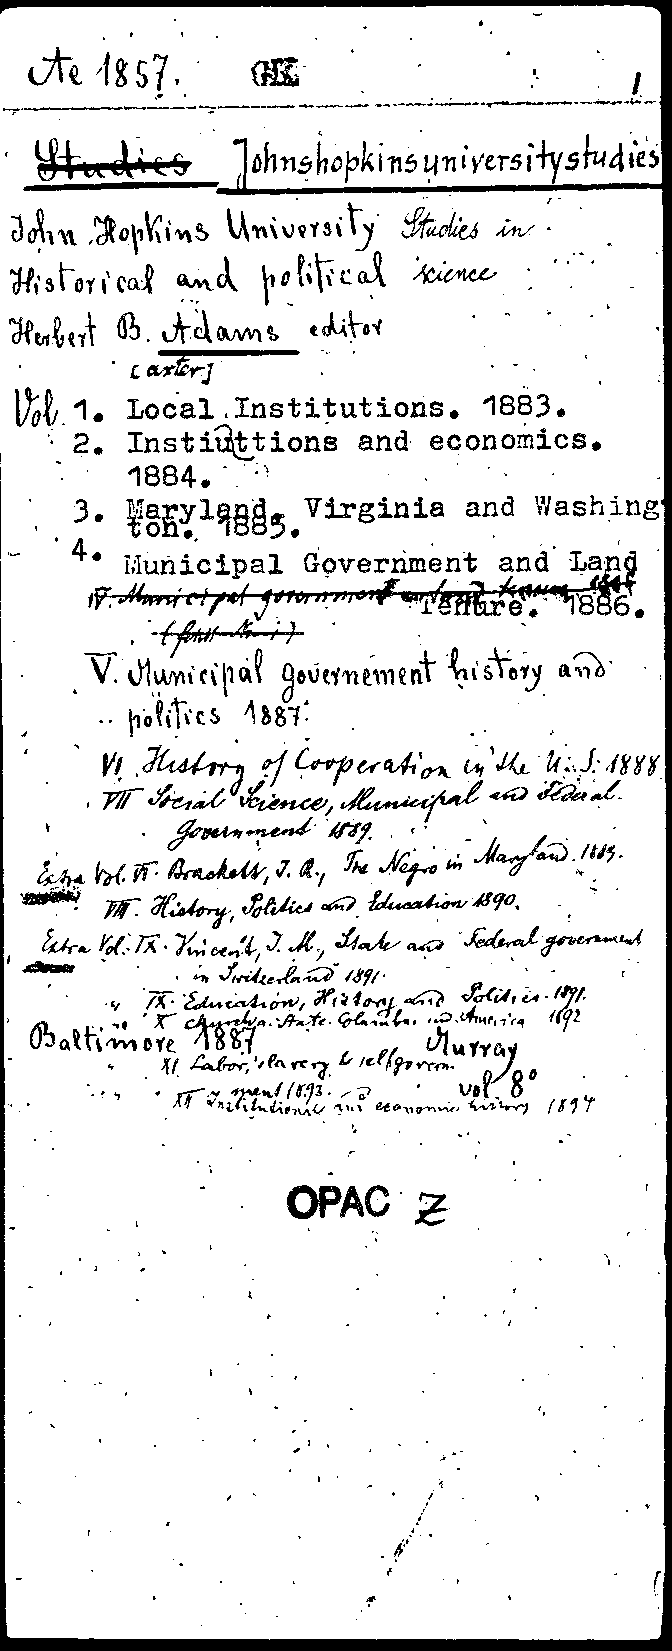 Ae 1857. GK 1
Studies Johnshopkinsuniversitystudies
John Hopkins University Studies in
Historical and political science
Herbert B. Adams editor
[axter]
Vol. 1. Local Institutions. 1883.
2. Instiuttions and economics.
1884.
3. Maryland, Virginia and Washing
ton. 1885.
4. Municipal Government and Land
IV. Municipal government and land tenure 1886
Tenure. 1886.
V. Municipal governement history and
politics 1887.
VI History of Cooperation in the U.S. 1888
VII Social Science, Municipal and Federal
Government 1889.
Extra Vol. VI. Brackett, J. R., The Negro in Maryland. 1889.
VIII. History, Politics and Education 1890.
Extra Vol. IX. Vincent, J. M., State and Federal government
in Switzerland 1891.
" IX. Education, History and Politics. 1891.
" X Church a. State. Columbus and America 1892
Baltimore 1887 Murray
" XI Labor, slavery & selfgovern
ment 1893. vol 8°
" " XII Institutional and economic history 1894
OPAC Z